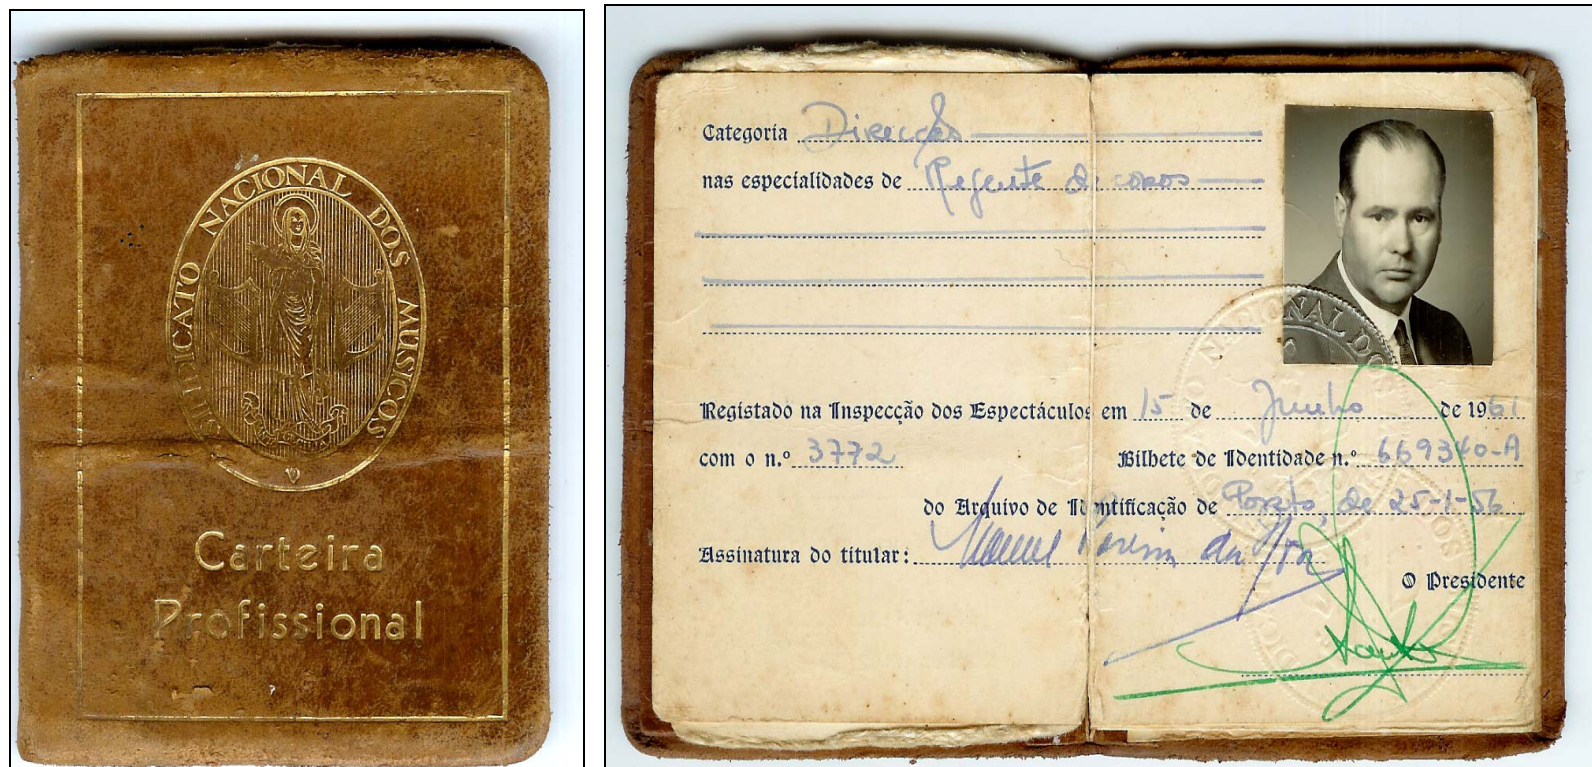 SINDICATO NACIONAL DOS MUSICOS
Carteira
Profissional
Categoria Direcção
nas especialidades de Regente de coros
Registado na Inspecção dos Espectáculos em 15 de Junho de 1961
com o n.º 3772 Bilhete de Identidade n.º 669340-A
do Arquivo de Identificação de Porto, de 25-1-56
Assinatura do titular: Manuel da
O Presidente
NACIONAL DOS